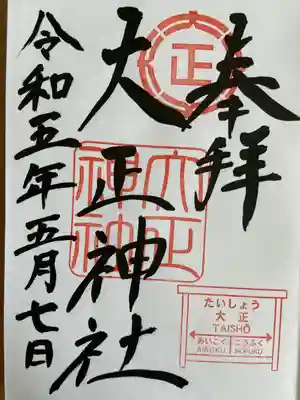 奉拝
正
大正神社
大正神神
令和五年五月七日
たいしょう
大正
TAISHŌ
あいこく こうふく
AIKOKU KOFUKU